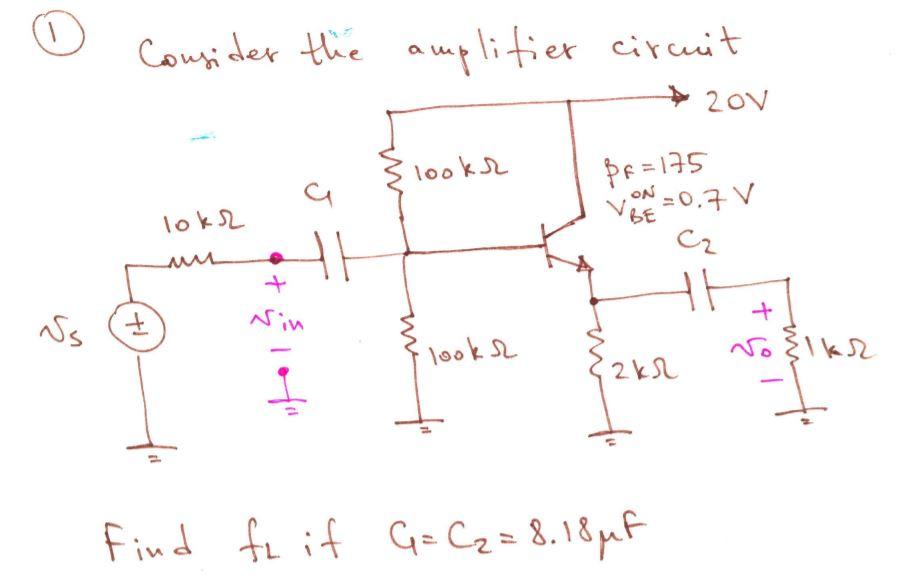 ①
Consider the amplifier circuit
20V
100kΩ
βF=175
V_BE^ON=0.7V
C1
10kΩ
C2
+
vs
±
vin
-
100kΩ
2kΩ
+
vo
-
1kΩ
Find fL if C1=C2=8.18μF